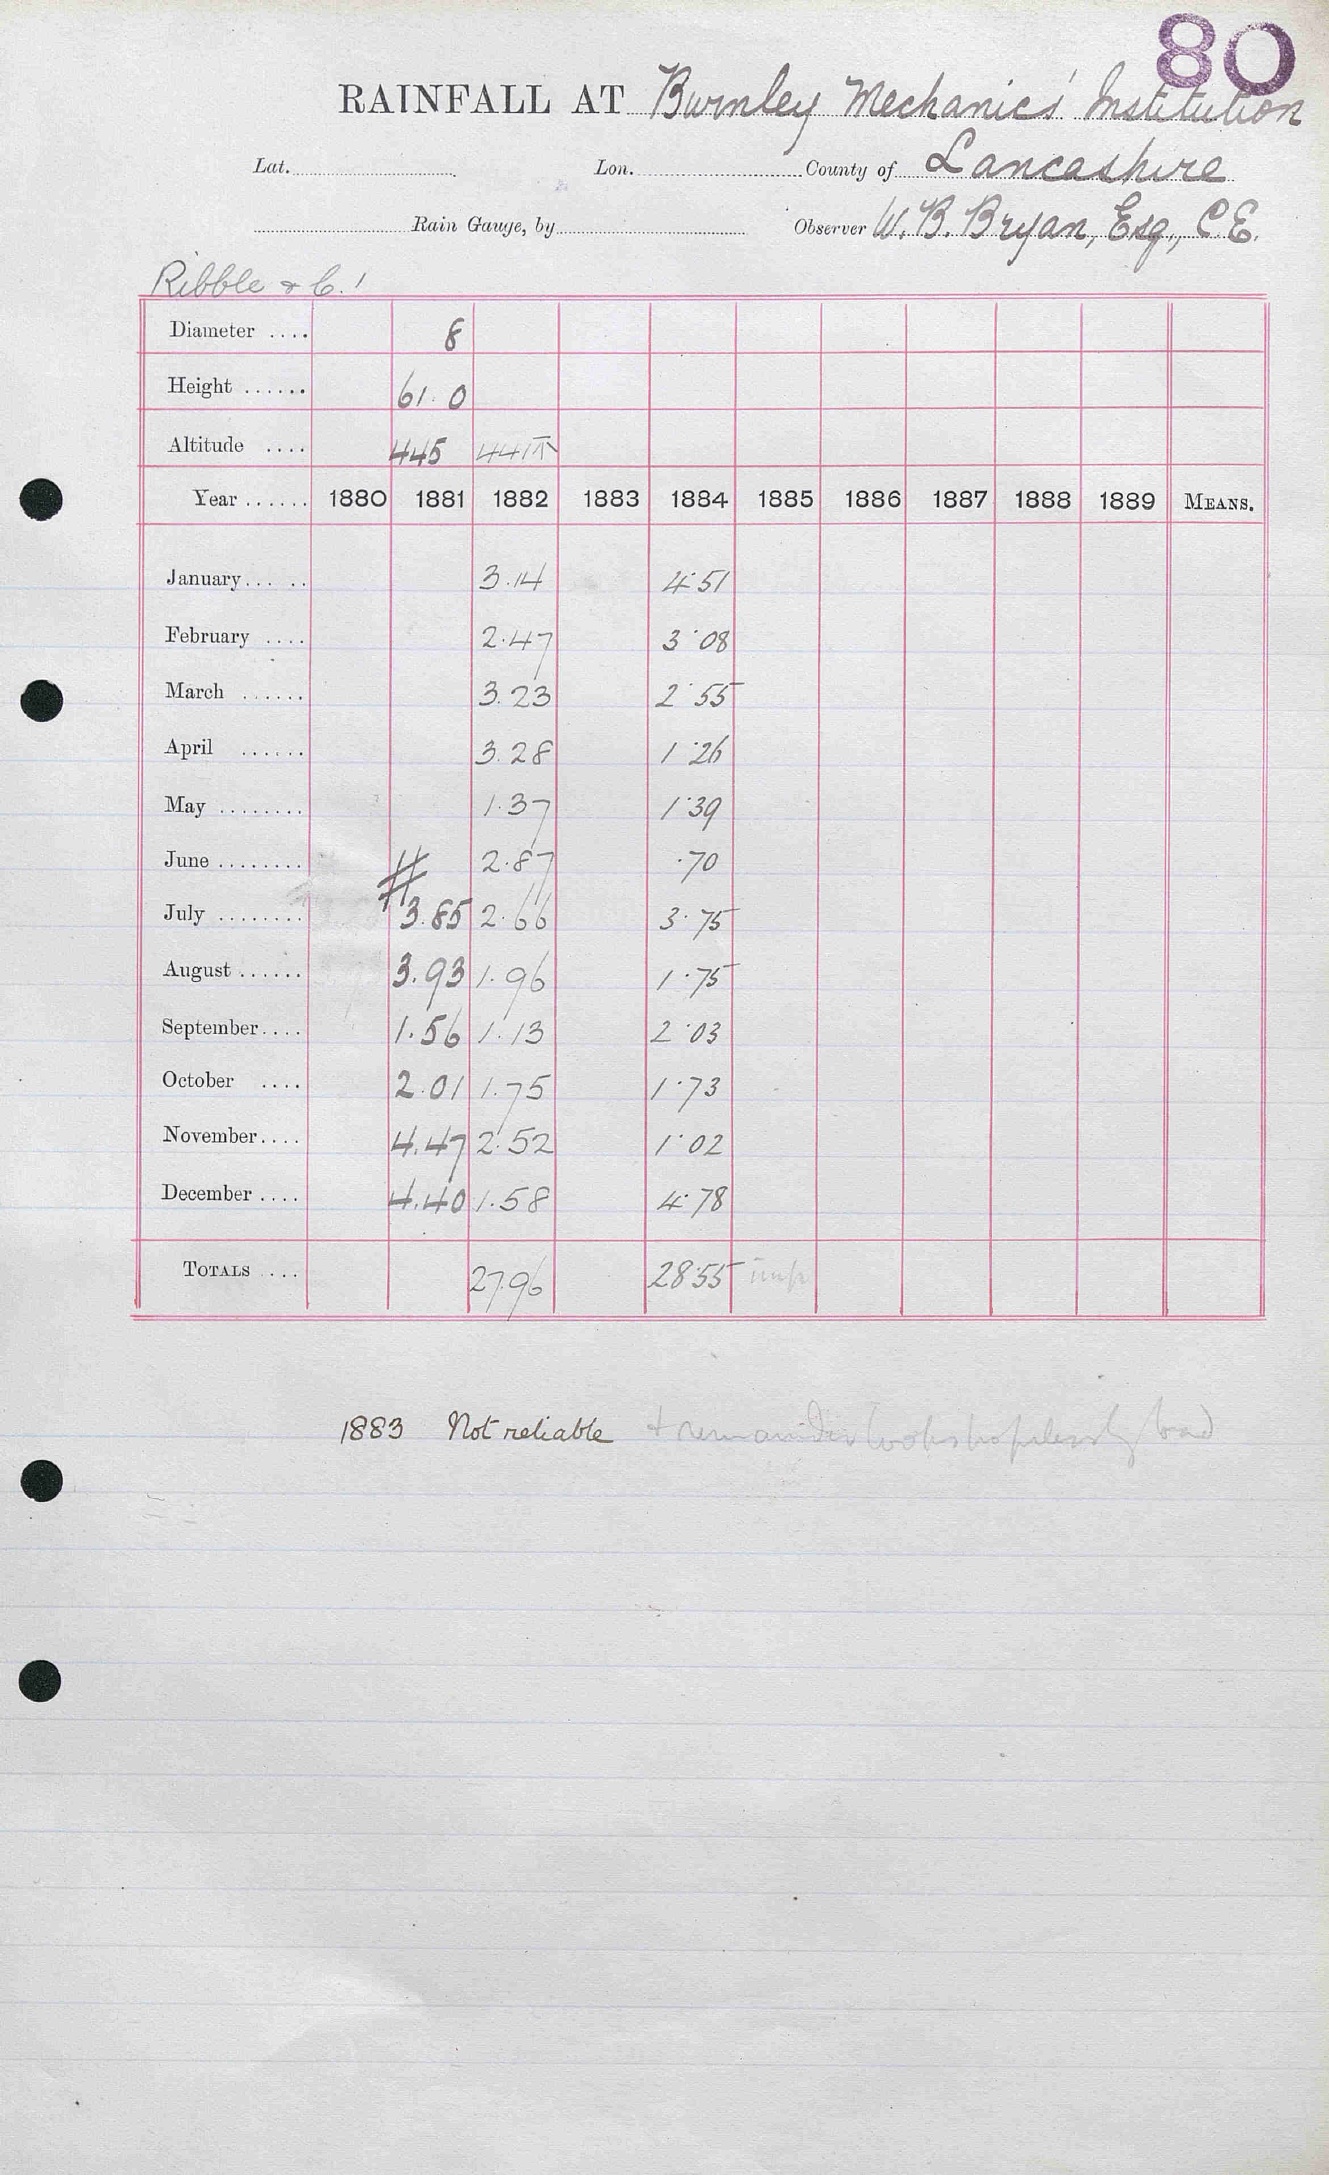 80
RAINFALL AT Burnley Mechanics' Institution
Lat. Lon. County of Lancashire
Rain Gauge, by Observer W. B. Bryan, Esq., C.E.
Ribble & C.
Diameter .... 8
Height ...... 61.0
Altitude .... 445
Year ...... 1880 1881 1882 1883 1884 1885 1886 1887 1888 1889 MEANS.
January... .. 3.14 4.51
February .... 2.47 3.08
March ...... 3.23 2.55
April ...... 3.28 1.26
May ........ 1.37 1.39
June ........ 2.87 .70
July ........ 3.85 2.66 3.75
August ...... 3.93 1.96 1.75
September .... 1.56 1.13 2.03
October .... 2.01 1.75 1.73
November .... 4.47 2.52 1.02
December .... 4.40 1.58 4.78
TOTALS .... 27.96 28.55 imp
1883 Not reliable & remainder looks hopelessly bad